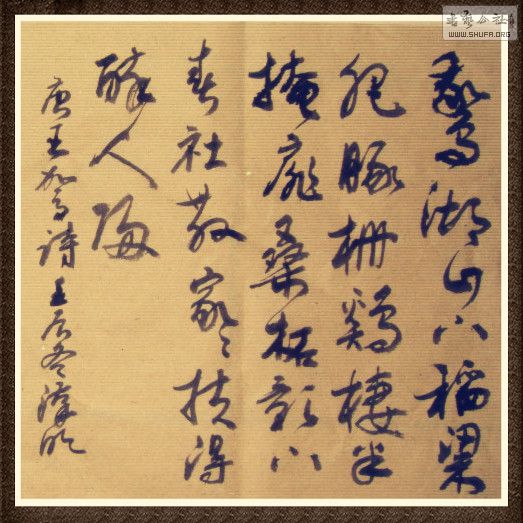 書藝公社
WWW.SHUFA.ORG
鵞湖山下稻粱
肥豚栅鷄棲半
掩扉桑柘影下
春社散家々扶得
醉人歸
唐王駕詩壬辰冬